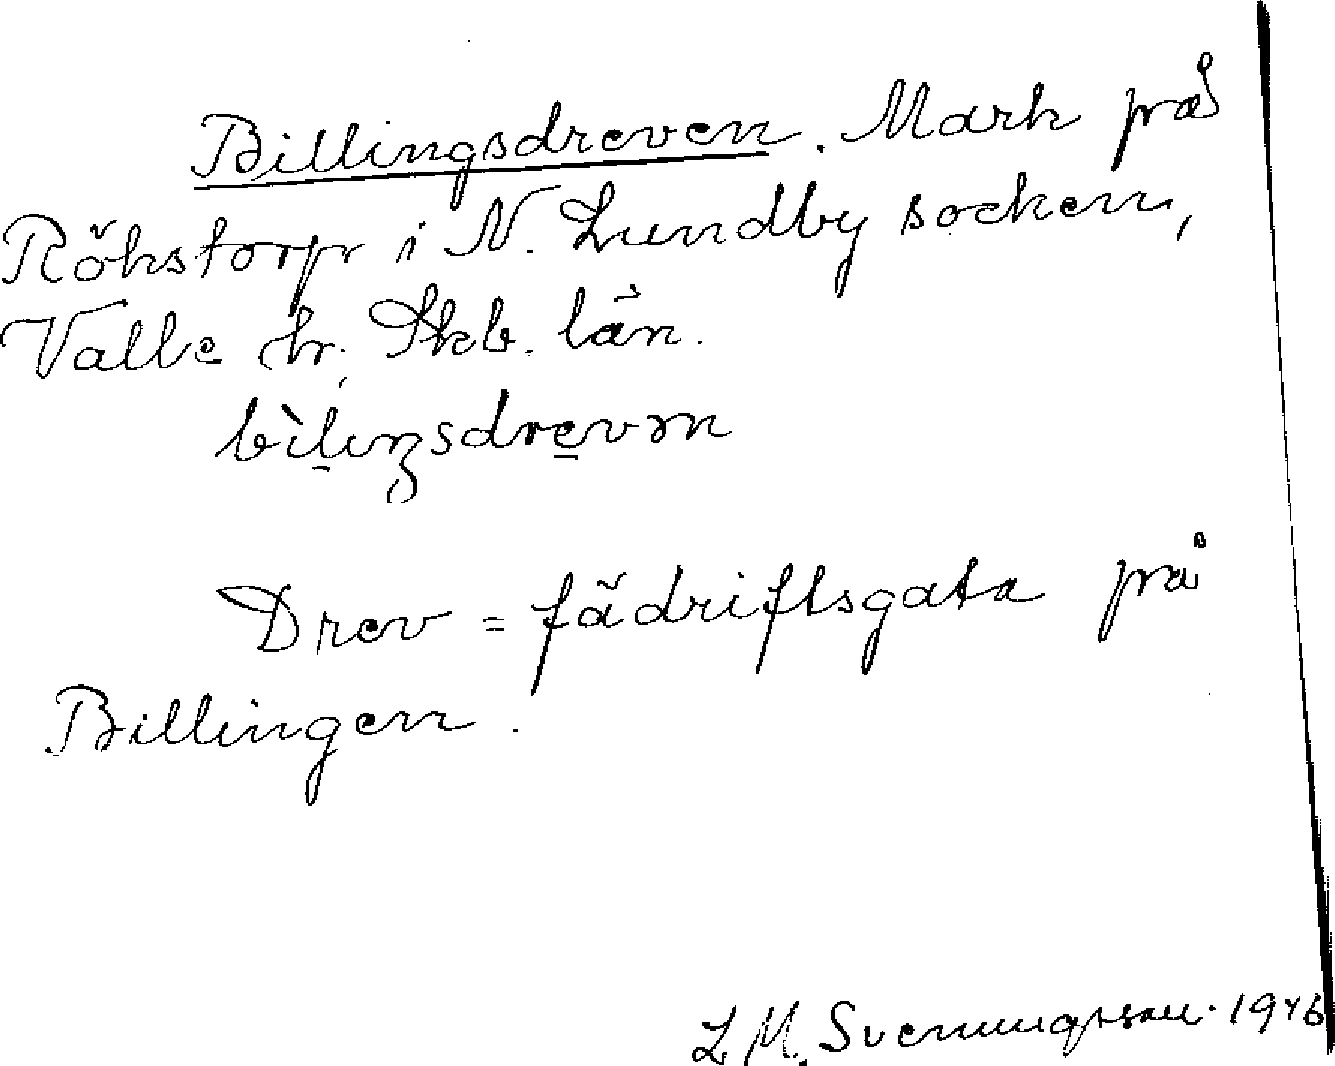 Billingsdreven. Mark på
Rökstorp i N. Lundby socken,
Valle hr. Skb. län.
bìliŋsdrevən
Drev = fädriftsgata på
Billingen.
L. M. Svenungsson. 1946